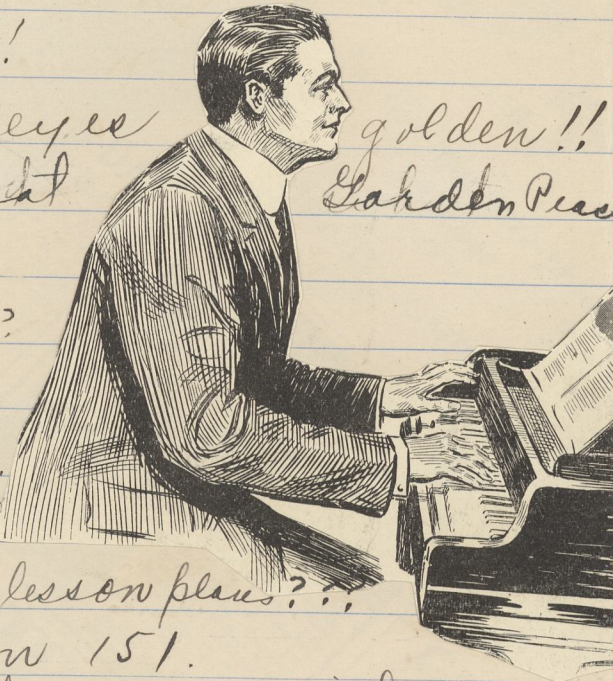 !
eyes golden!!
at Garden Peac
?
lesson plans???
n 151.